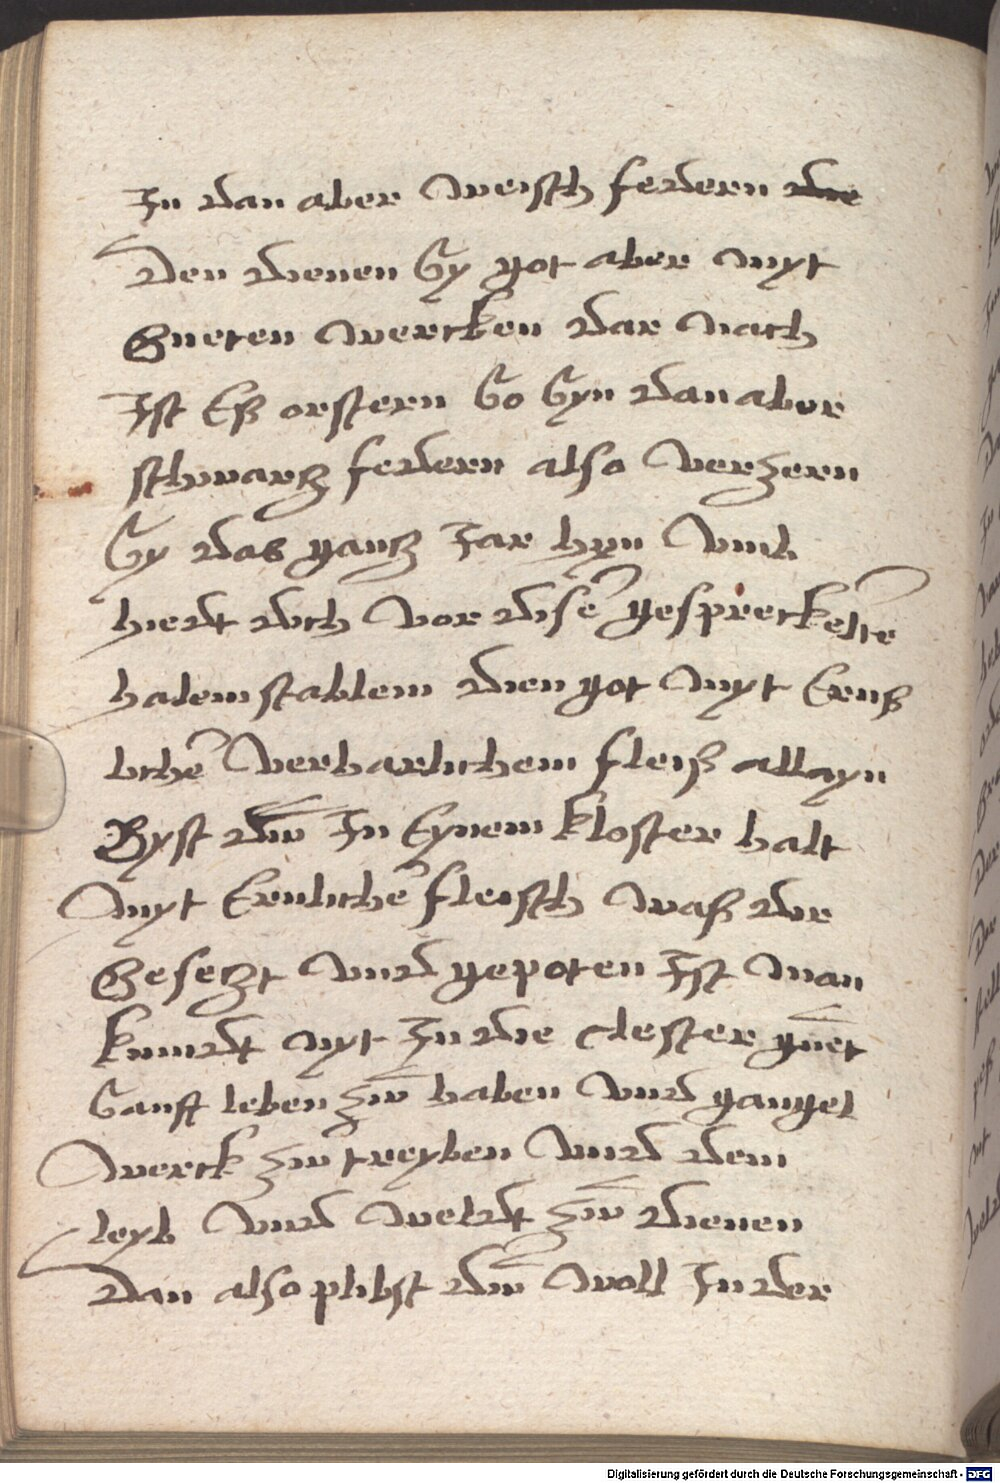 In dan aber weisch federn die
den dienen Sy got aber myt
Gueten wercken dar nach
Ist Eß ostern So Syn dan aber
schwartz federn also verzern
Sy das gantz Jar hyn Vmb
hiedt dich vor disē gespreckeltē
halem stablem dien got myt Ernß
lichē verharlichem fleiß allayn
Byst dw In Eynem kloster halt
myt Ernlichē fleisch waß dir
Gesetzt vnd gepoten Ist man
kumdt nyt In die clester guet
Sanft leben zw haben vnd gaugel
werck zw treyben vnd dem
leyb vnd weldt zw dienen
dan also plibst dw woll In der
Digitalisierung gefördert durch die Deutsche Forschungsgemeinschaft - DFG